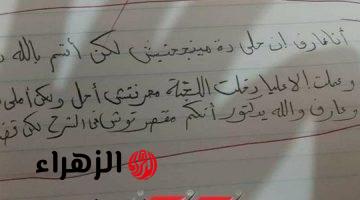 أنا عارف إن حلى ده مينجحنيش لكن أنتم بالله
وعملت الاعليا دخلت اللجنة معرفتش أحل ولكن أملى
وعارف والله يدكتور أنكم مقصرتوش فى الشرح لكن
الزهراء